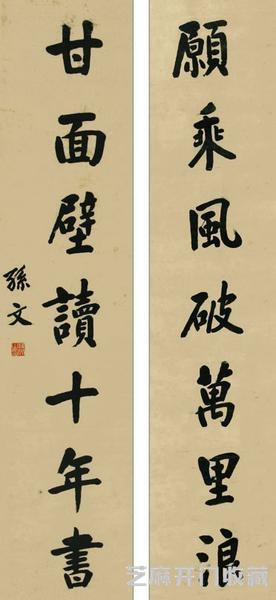 願乘風破萬里浪
甘面壁讀十年書
孫文
芝麻开门收藏